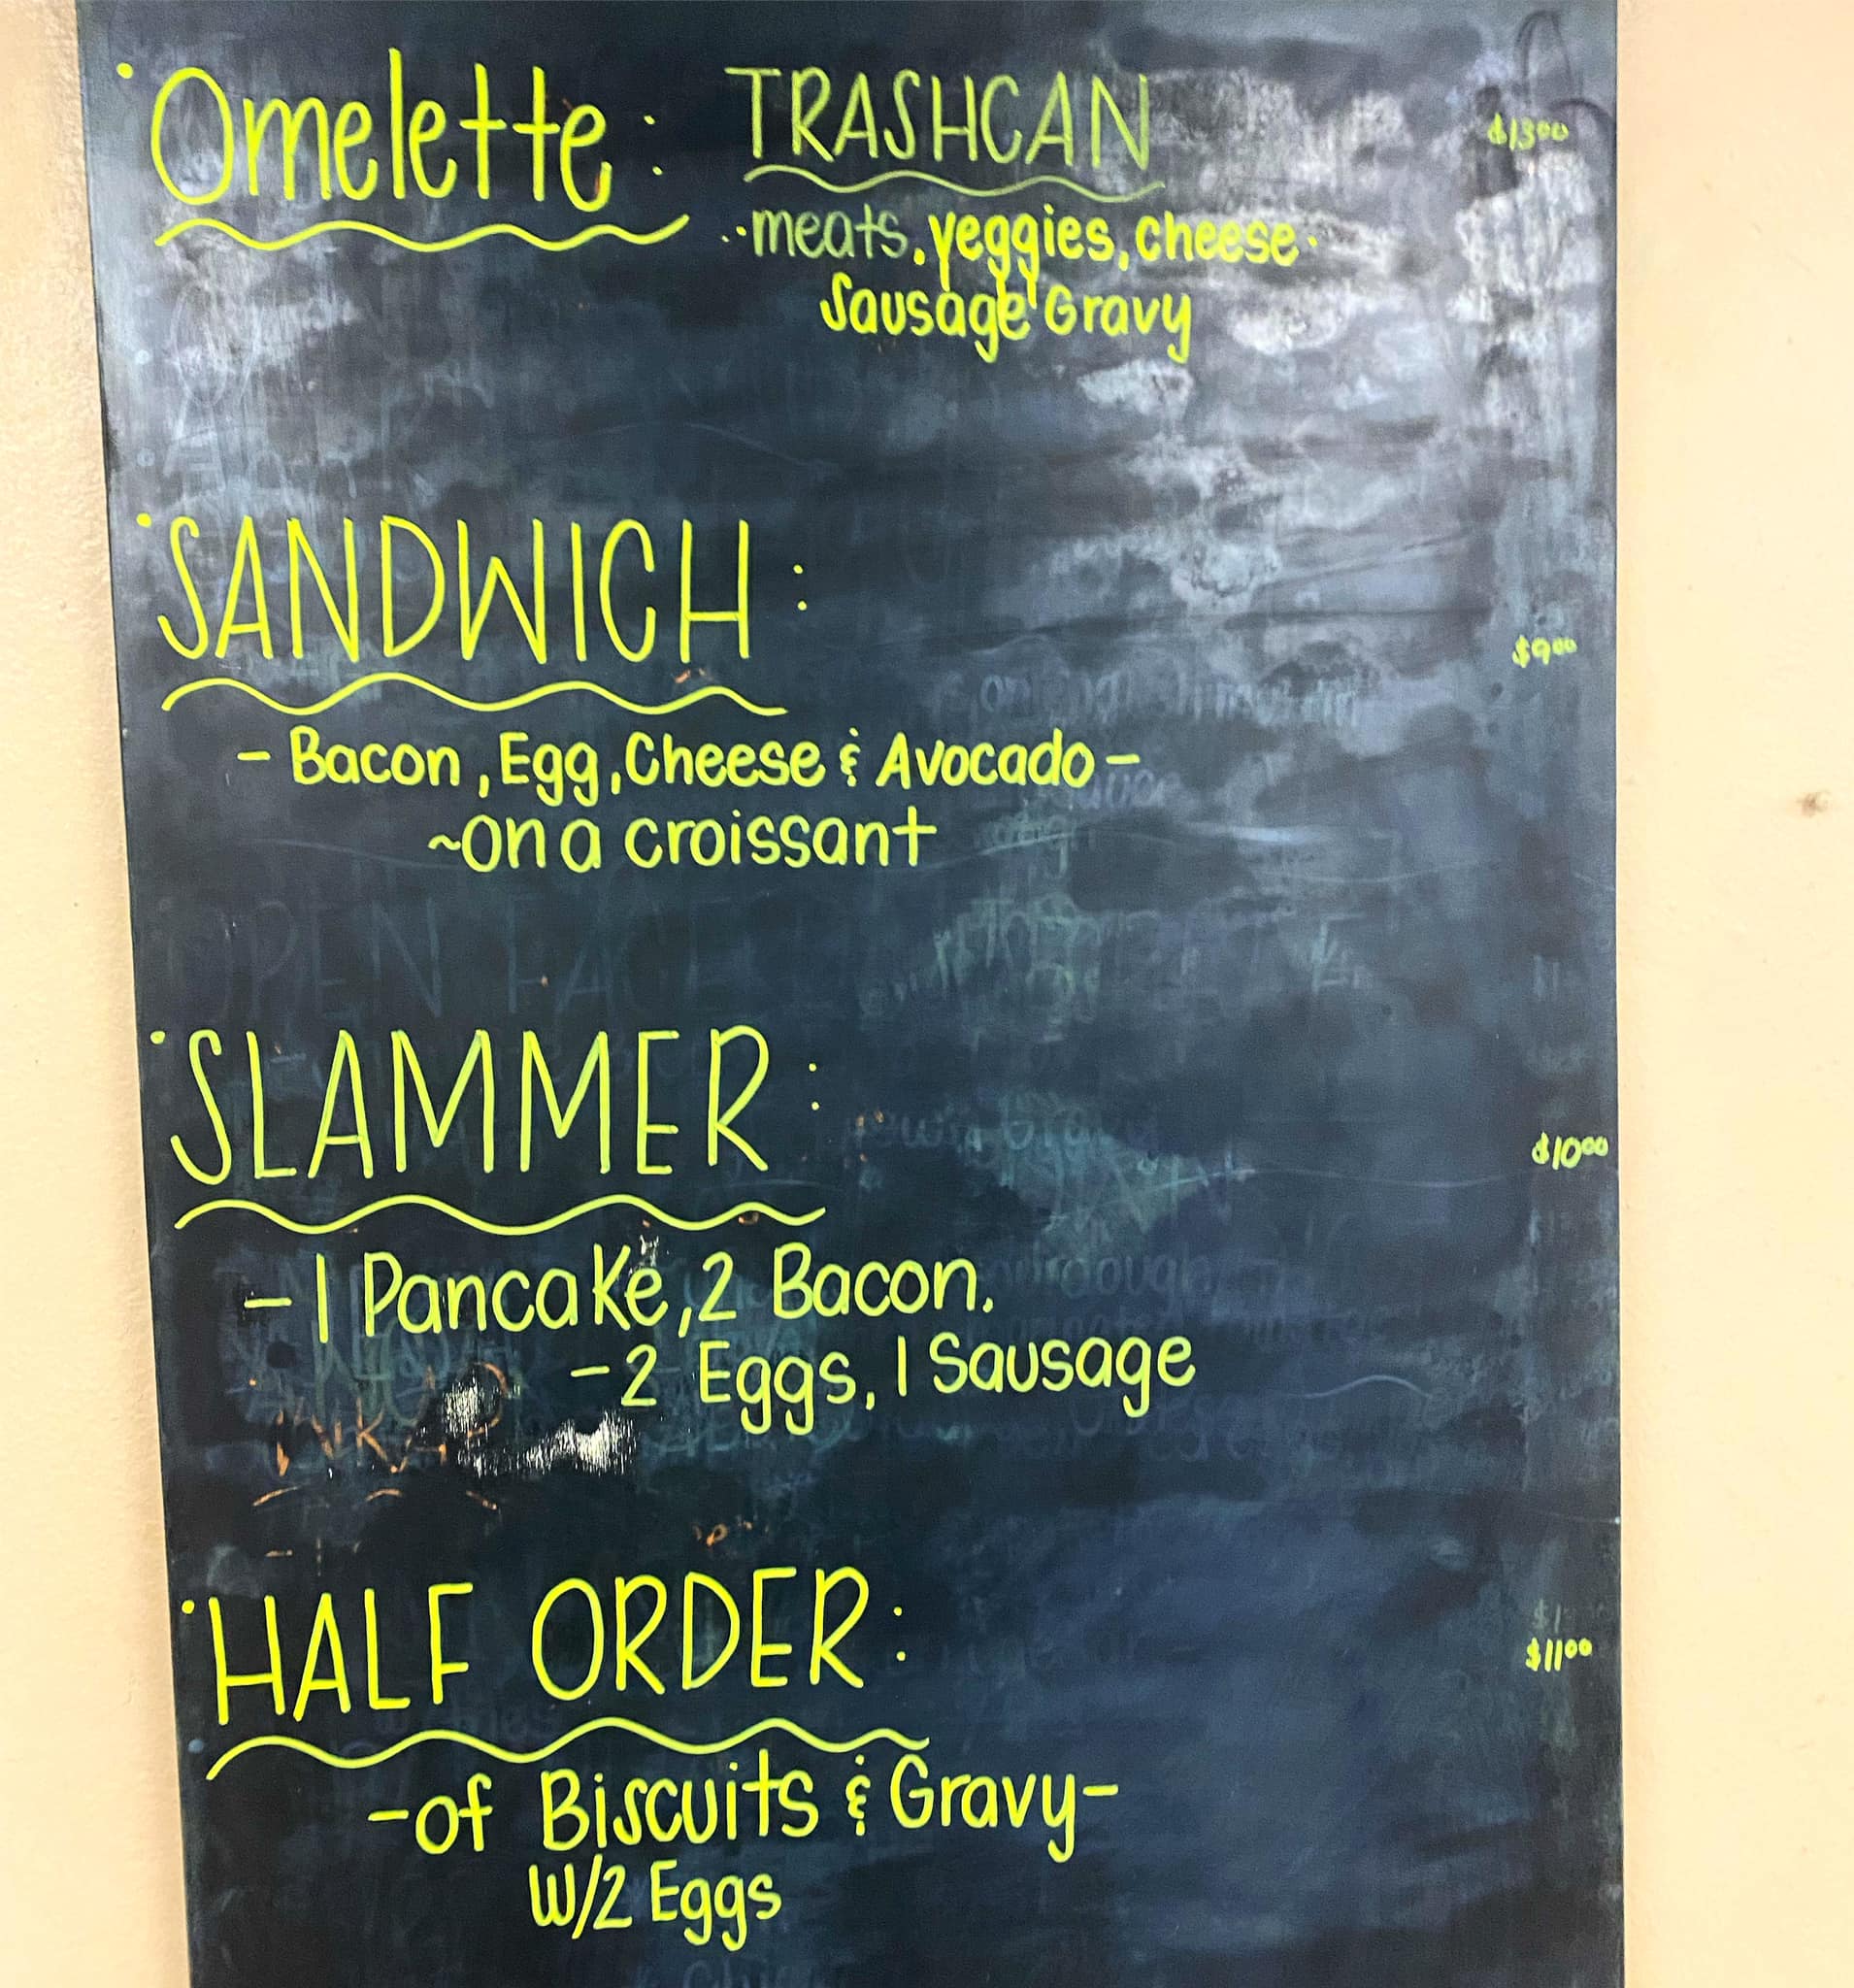 Omelette: TRASHCAN $13.00
..meats, veggies, cheese.
Sausage Gravy
SANDWICH:
$9.00
- Bacon, Egg, Cheese & Avocado -
~on a croissant
OPEN FACE
SLAMMER:
$10.00
- 1 Pancake, 2 Bacon.
- 2 Eggs, 1 Sausage
HALF ORDER:
$11.00
- of Biscuits & Gravy -
W/2 Eggs